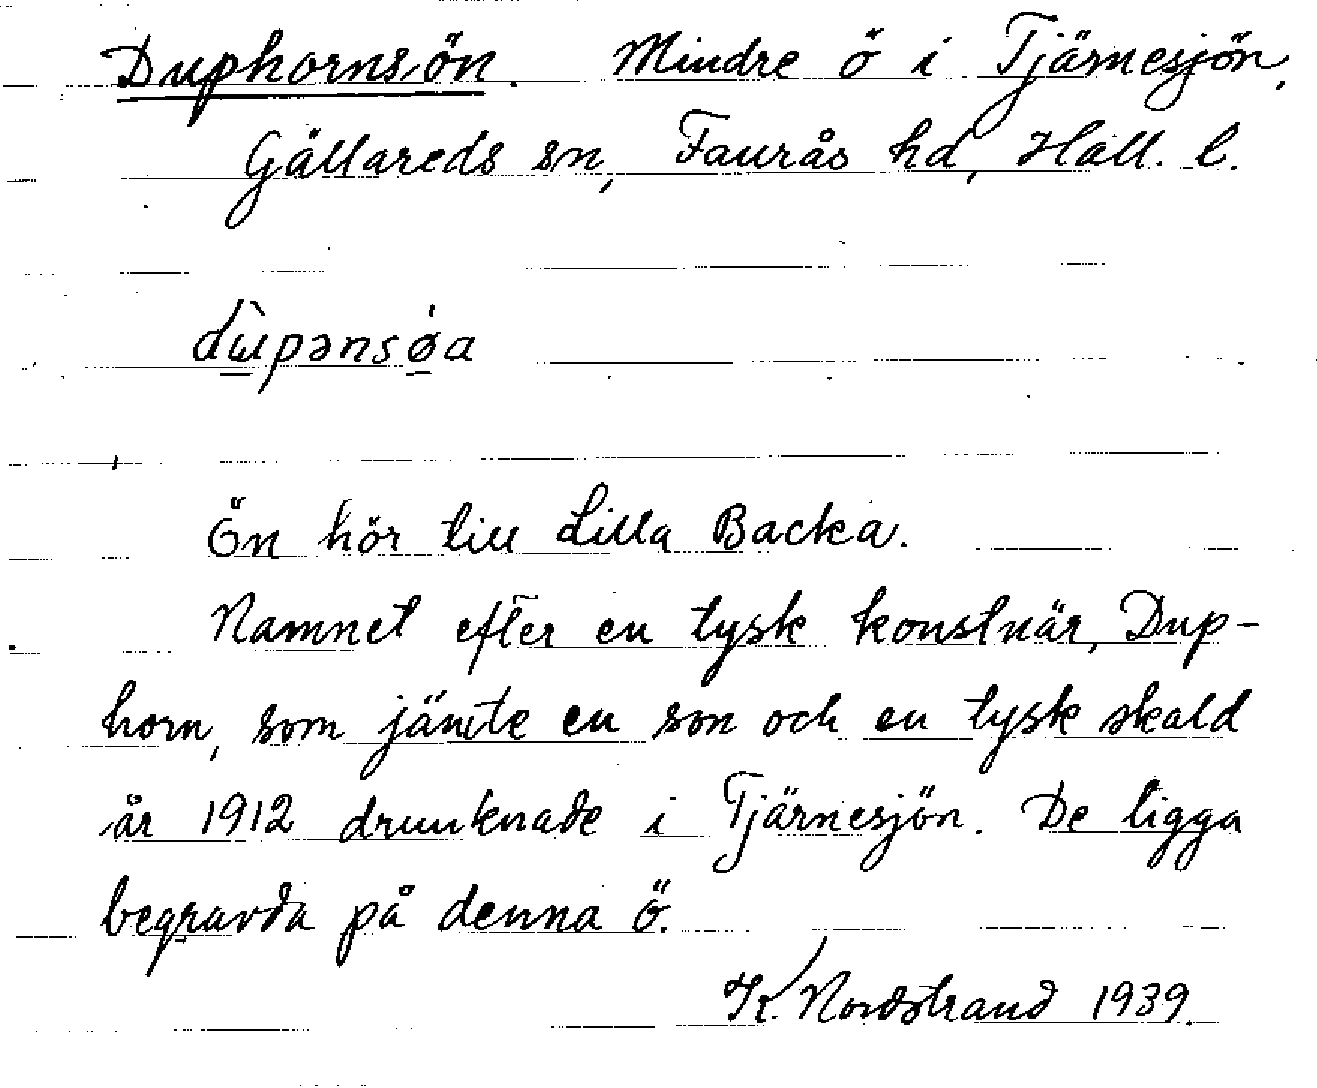 Duphornsön. Mindre ö i Tjärnesjön,
Gällareds sn, Faurås hd, Hall. l.
dɯ̀pənsǿa
Ön hör till Lilla Backa.
Namnet efter en tysk konstnär, Dup-
horn, som jämte en son och en tysk skald
år 1912 drunknade i Tjärnesjön. De ligga
begravda på denna ö.
K. Nordstrand 1939.